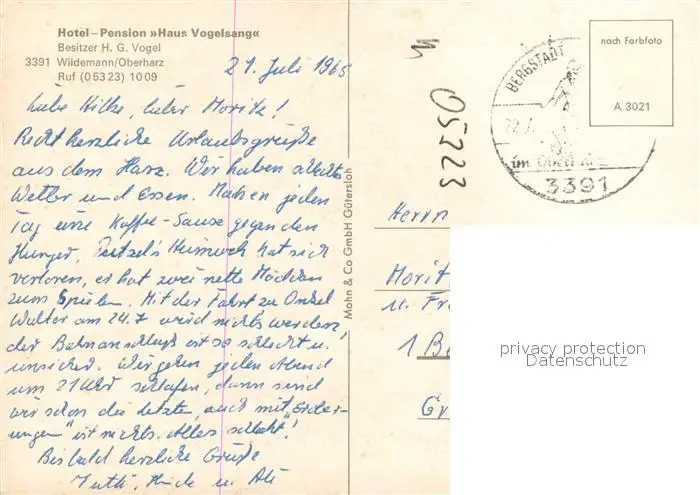 Hotel – Pension »Haus Vogelsang«
Besitzer H. G. Vogel
3391 Wildemann/Oberharz
Ruf (0 53 23) 10 09
21. Juli 1965
liebe Hilke, lieber Moritz!
Recht herzliche Urlaubsgrüße
aus dem Harz. Wir haben schlechtes
Wetter und Essen. Machen jeden
Tag eine Kaffee-Sause gegen den
Hunger. Heimweh hat sich
verloren, er hat zwei nette Mädchen
zum Spielen. Mit der Fahrt zu Onkel
Walter am 24.7 wird nichts werden,
der Bahnanschluß ist so schlecht u.
unsicher. Wir gehen jeden Abend
um 21 Uhr schlafen, dann sind
wir schon die letzten, auch mit
ist nichts. Alles schläft!
Bis bald herzliche Grüße
u.
Mohn & Co GmbH Gütersloh
05223
BERGSTADT
im Oberharz
3391
nach Farbfoto
A 3021
Herrn
Morit
u. Fr
1 B
G
privacy protection
Datenschutz